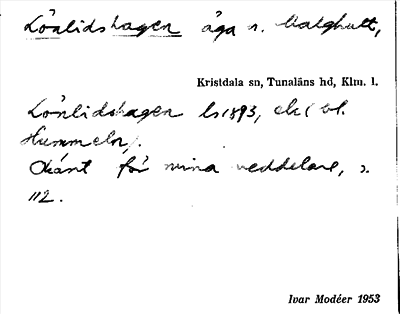 Lönlidshagen äga n. Malghult,
Kristdala sn, Tunaläns hd, Klm. l.
Lönlidshagen ls 1893, ek (vl.
Hummeln).
Okänt för mina meddelare, s.
112.
Ivar Modéer 1953